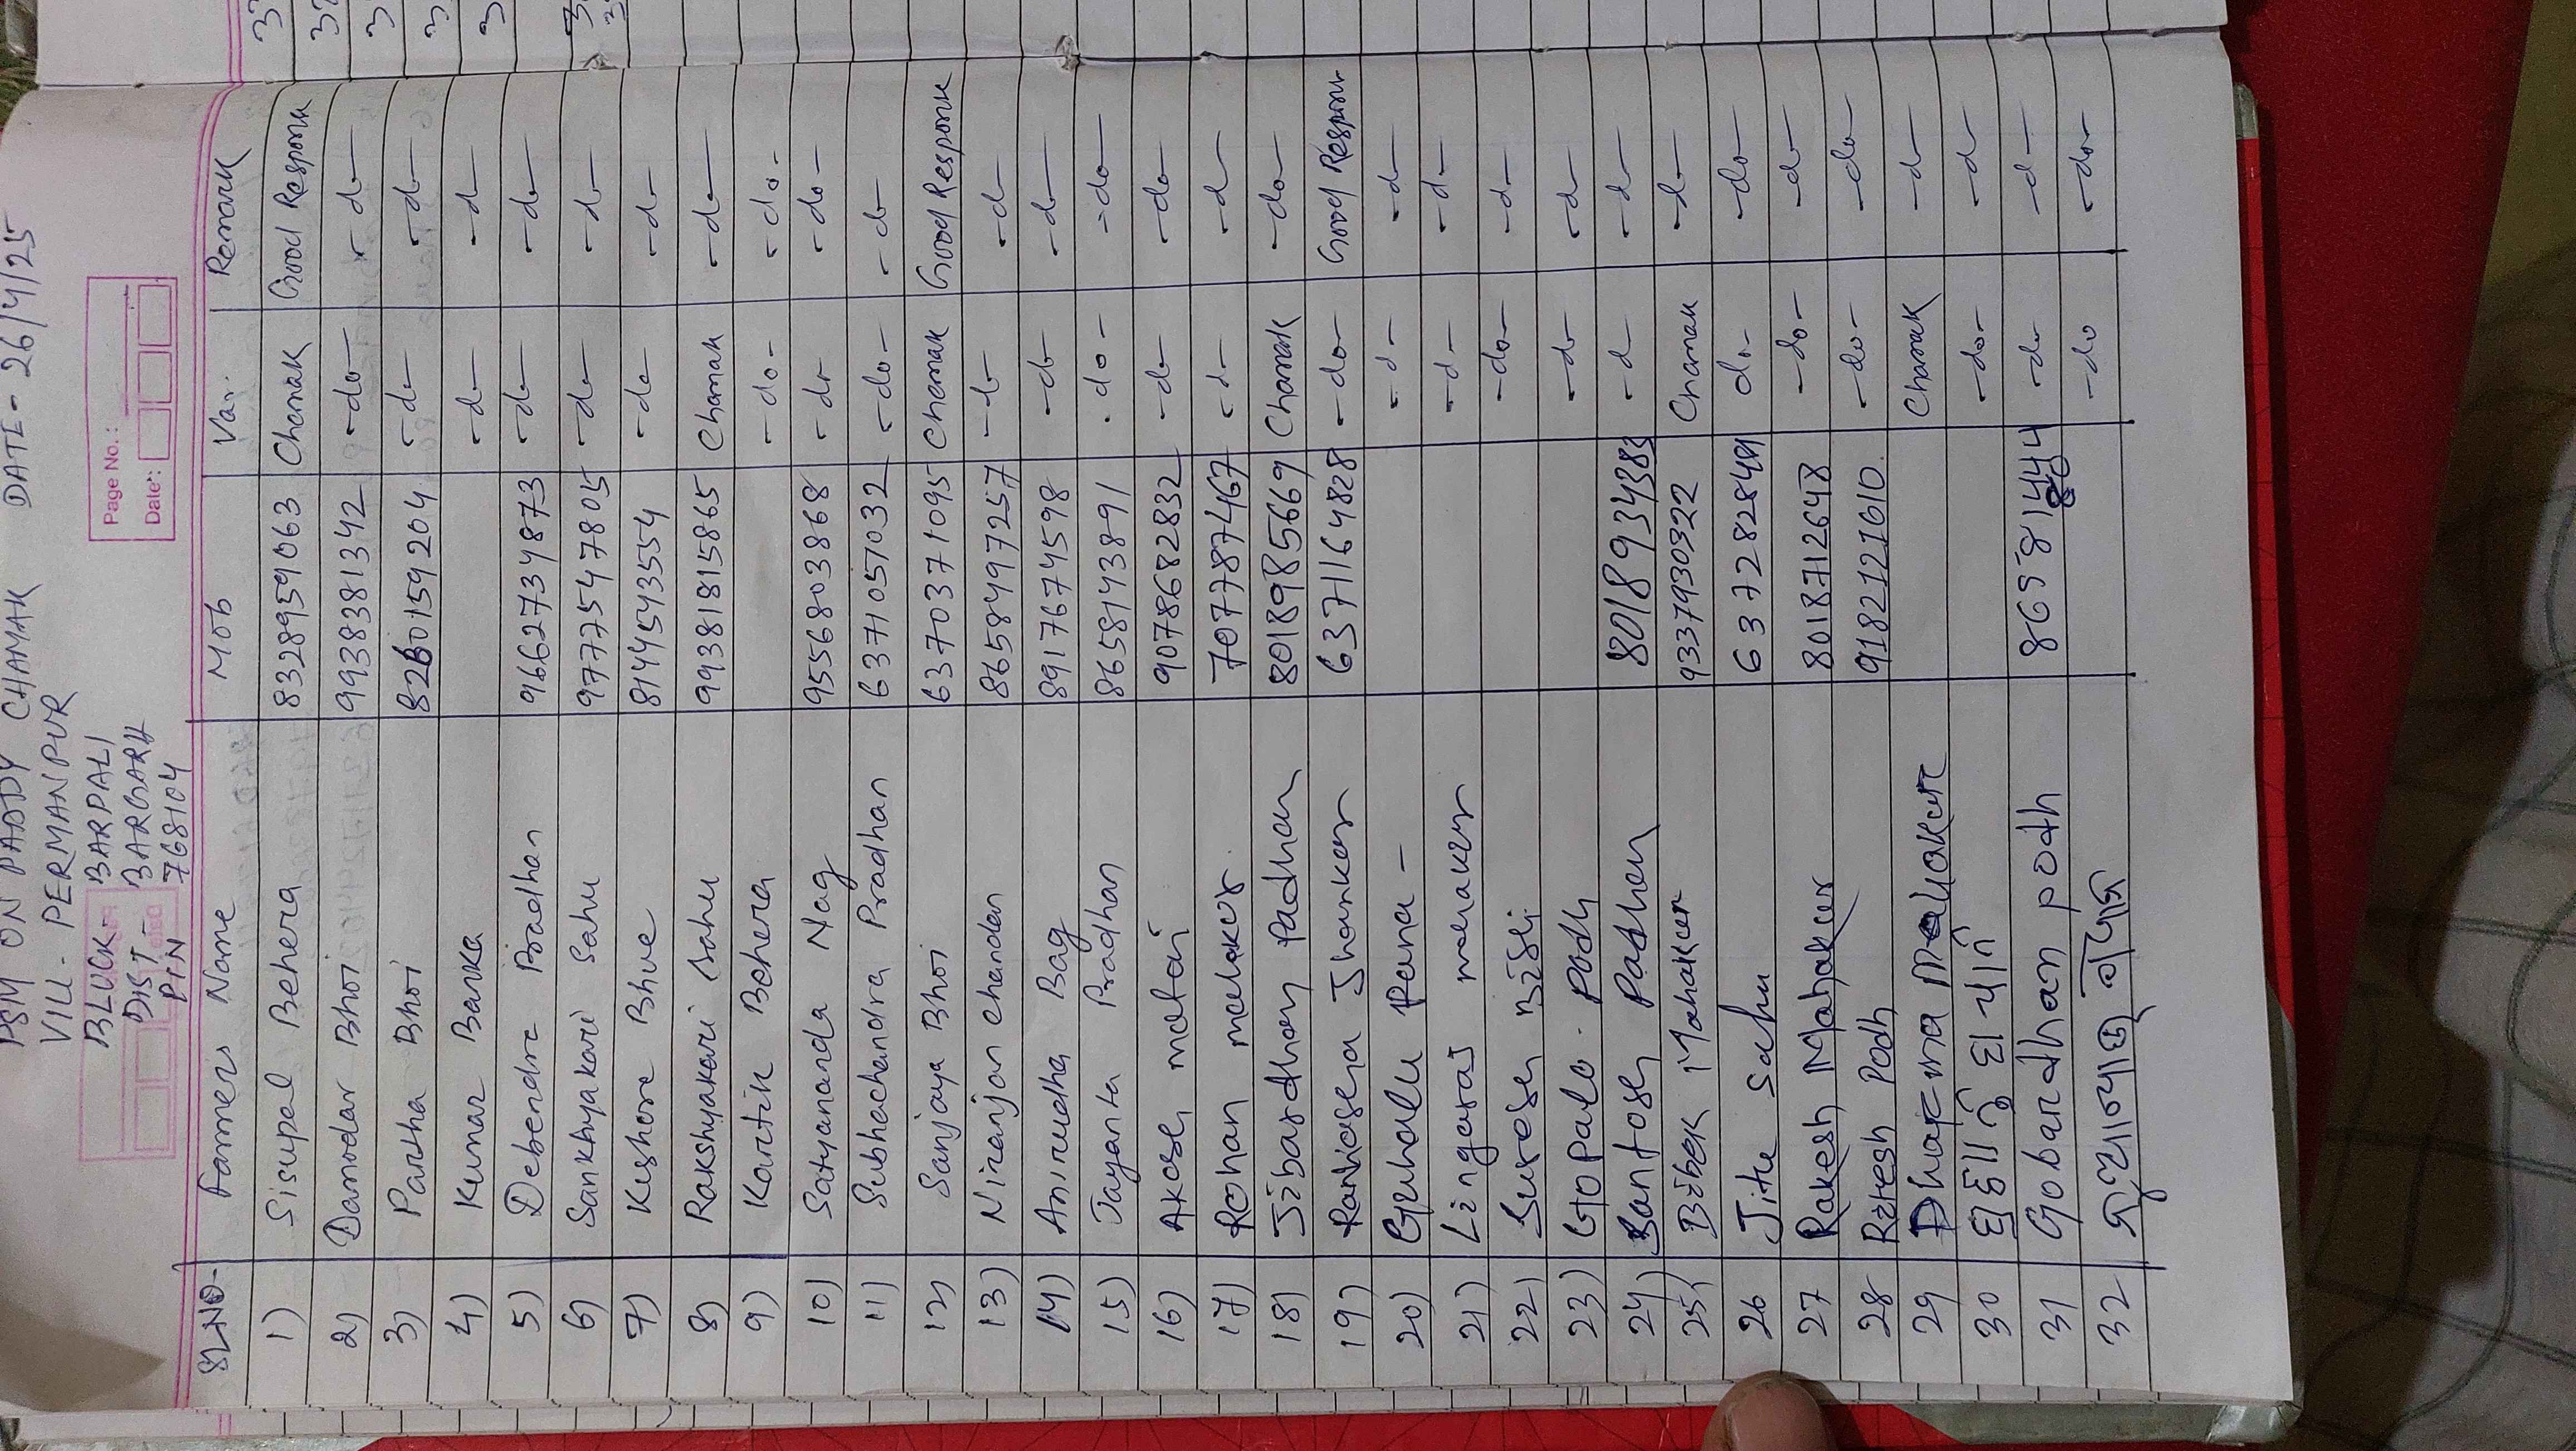 PSM ON PADDY CHAMAK DATE- 26/4/25
VILL- PERMANPUR
BLOCK- BARPALI
DIST- BARGARH
PIN 768104
Page No.:
Date:
SL.NO- Farmers Name Mob Var. Remark
1) Sisupal Behera 8328959063 Chamak Good Response
2) Damodar Bhoi 9938381342 -do- -do-
3) Partha Bhoi 8260159204 -do- -do-
4) Kumar Barika -do- -do-
5) Debendra Pradhan 9662734873 -do- -do-
6) Sankhyakari Sahu 9777547805 -do- -do-
7) Kishore Bhue 8144543554 -do- -do-
8) Rakshyakari Sahu 9938181865 Chamak -do-
9) Kartik Behera -do- -do-
10) Satyananda Nag 9556803868 -do- -do-
11) Subhachandra Pradhan 6371057032 -do- -do-
12) Sanjaya Bhoi 6370371095 Chamak Good Response
13) Niranjan Chandan 8658497257 -do- -do-
14) Anirudha Bag 8917674598 -do- -do-
15) Jayanta Pradhan 8658143891 -do- -do-
16) Akash 9078682832 -do- -do-
17) Rohan 7077874467 -do- -do-
18) Jibardhan Padhan 8018985669 Chamak -do-
19) Jhankar 6371164828 -do- Good Response
20) Rana - -do- -do-
21) Lingaraj -do- -do-
22) Suresh Bishi. -do- -do-
23) Gopalo. Podh -do- -do-
24) Santosh Padhan 8018934383 -d- -do-
25) Bibek Mahakur 9337930322 Chamak -do-
26 Jitu Sahu do- -do-
27 Rakesh Mahakur 8018712648 -do- -do-
28 Ritesh Podh 9182121610. -do- -do-
29 Mahakur Chamak -do-
30 -do- -do-
31 Gobardhan podh -do- -do-
32 -do -do-